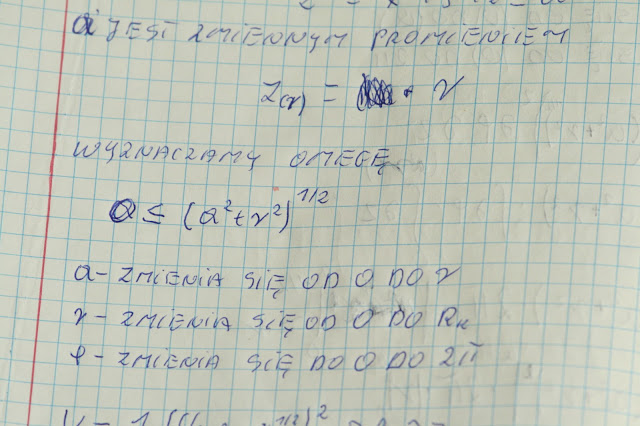 a JEST ZMIENNYM PROMIENIEM
Z(r) = · r
WYZNACZAMY OMEGĘ
a ≤ (a²+r²)^1/2
a - ZMIENIA SIĘ OD O DO r
r - ZMIENIA SIĘ OD O DO Rk
φ - ZMIENIA SIĘ DO O DO 2π